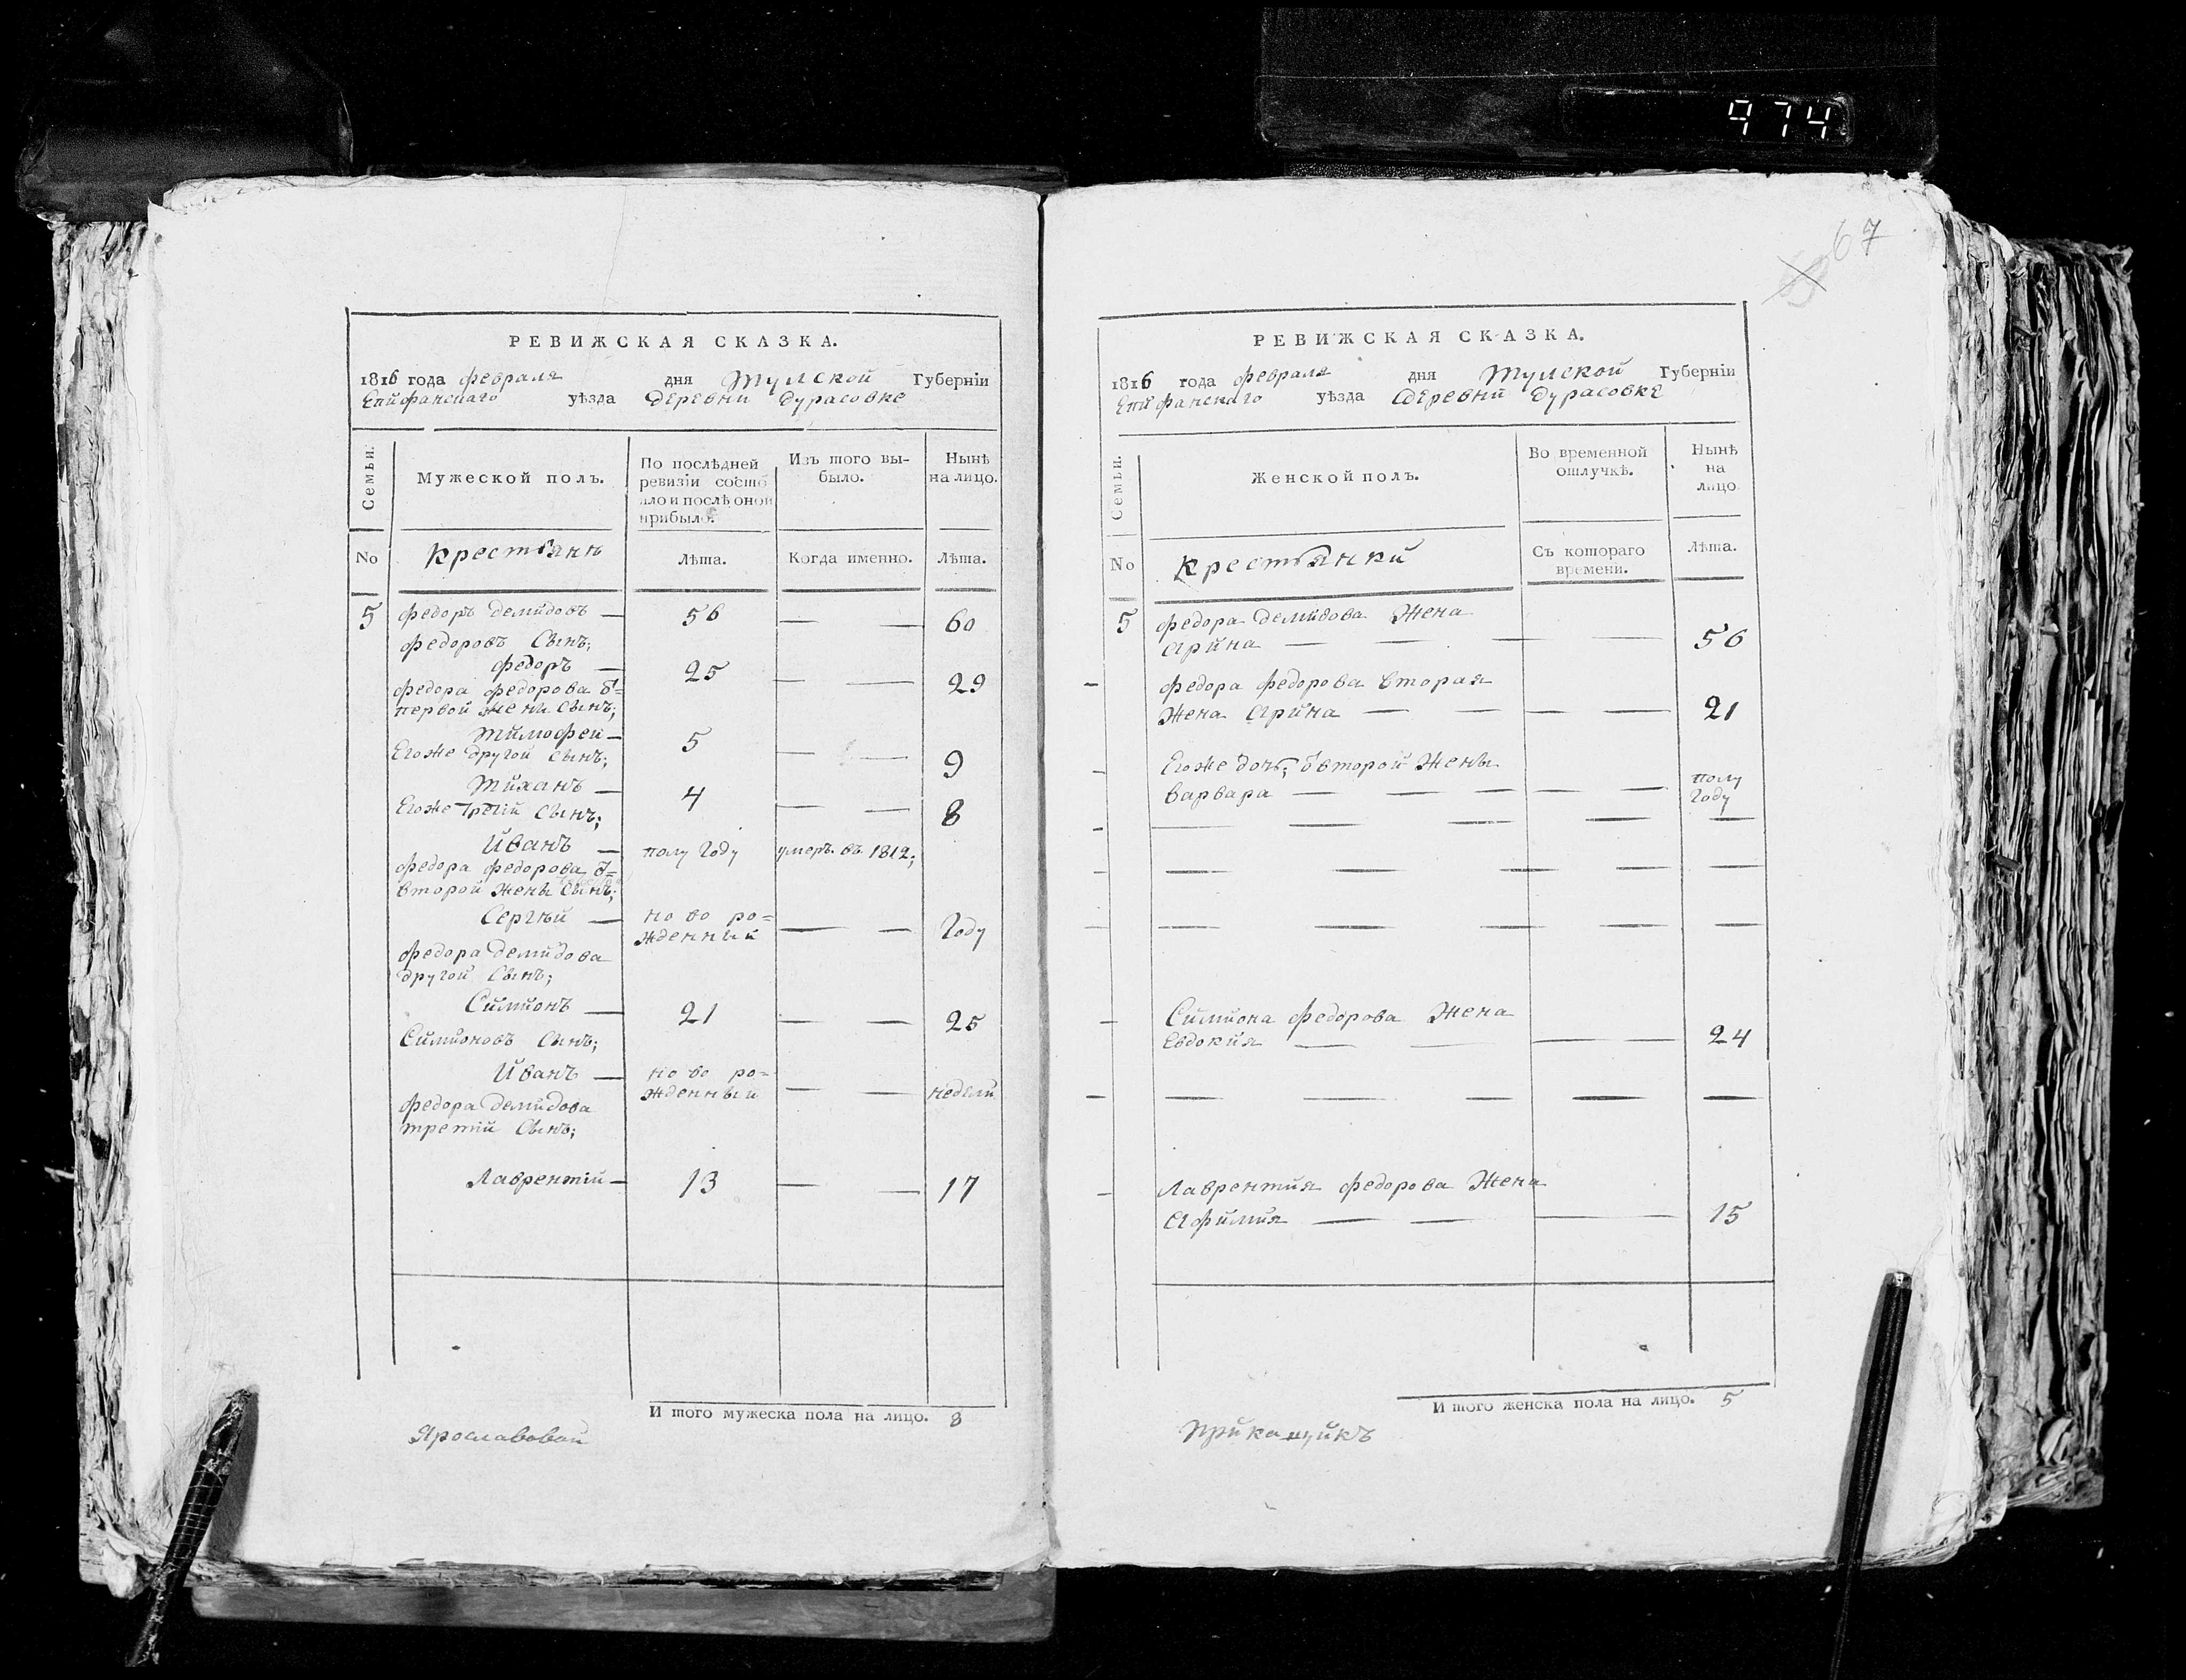 974
67
РЕВИЖСКАЯ СКАЗКА.
1816 года февраля дня Тулской Губернiи
Епифанскаго уѣзда деревни дурасовке
Семьи.
Мужеской полъ.
По послѣдней ревизiи состо
яло и послѣ оной прибыло.
Изъ того вы-
было.
Нынѣ
на лицо.
No крестьянъ Лѣта. Когда именно. Лѣта.
5 федоръ демидовъ — 56 — — 60
федоровъ Сынъ;
федоръ — 25 — — 29
федора федорова б=
первой жены Сынъ;
Тимофей — 5 — — 9
Егоже другой Сынъ;
Тиханъ — 4 — — 8
Егоже третiй Сынъ;
Иванъ — полу году умеръ въ 1812;
федора федорова б=
второй жены Сынъ;
Сергѣй — ново ро=
жденный — — Году
федора демидова
другой Сынъ;
Симионъ — 21 — — 25
Симионовъ Сынъ;
Иванъ — ново ро=
жденный — — недели
федора демидова
третiй Сынъ;
Лаврентiй — 13 — — 17
И того мужеска пола на лицо. 8
РЕВИЖСКАЯ СКАЗКА.
1816 года февраля дня Тулской Губернiи
Епифанскаго уѣзда деревни дурасовке
Семьи.
Женской полъ.
Во временной
отлучкѣ.
Нынѣ
на
лицо
No крестьянки Съ котораго
времени. Лѣта.
5 федора демидова жена
Арина — — — — 56
федора федорова вторая
жена Арина — — — — 21
Егоже дочь; б второй жены
варвара — — — — — полу
Году
Симиона федорова жена
Евдокия — — — 24
Лаврентия федорова жена
Афимия — — — 15
И того женска пола на лицо. 5
Ярославовай
Прикащикъ